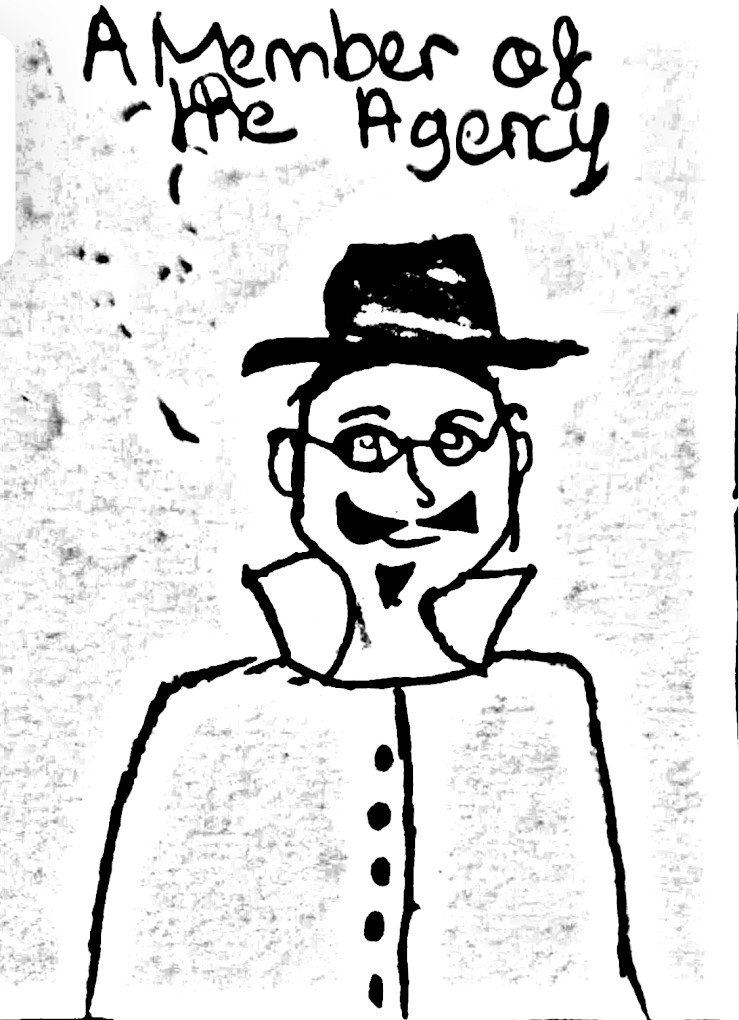 A Member of
the Agency